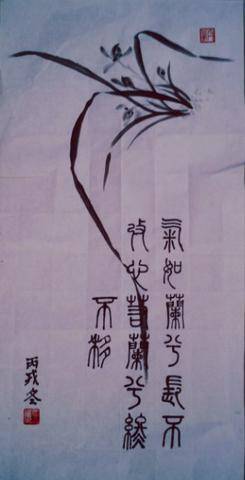 氣如蘭兮長不
改心若蘭兮終
不移
丙戌冬